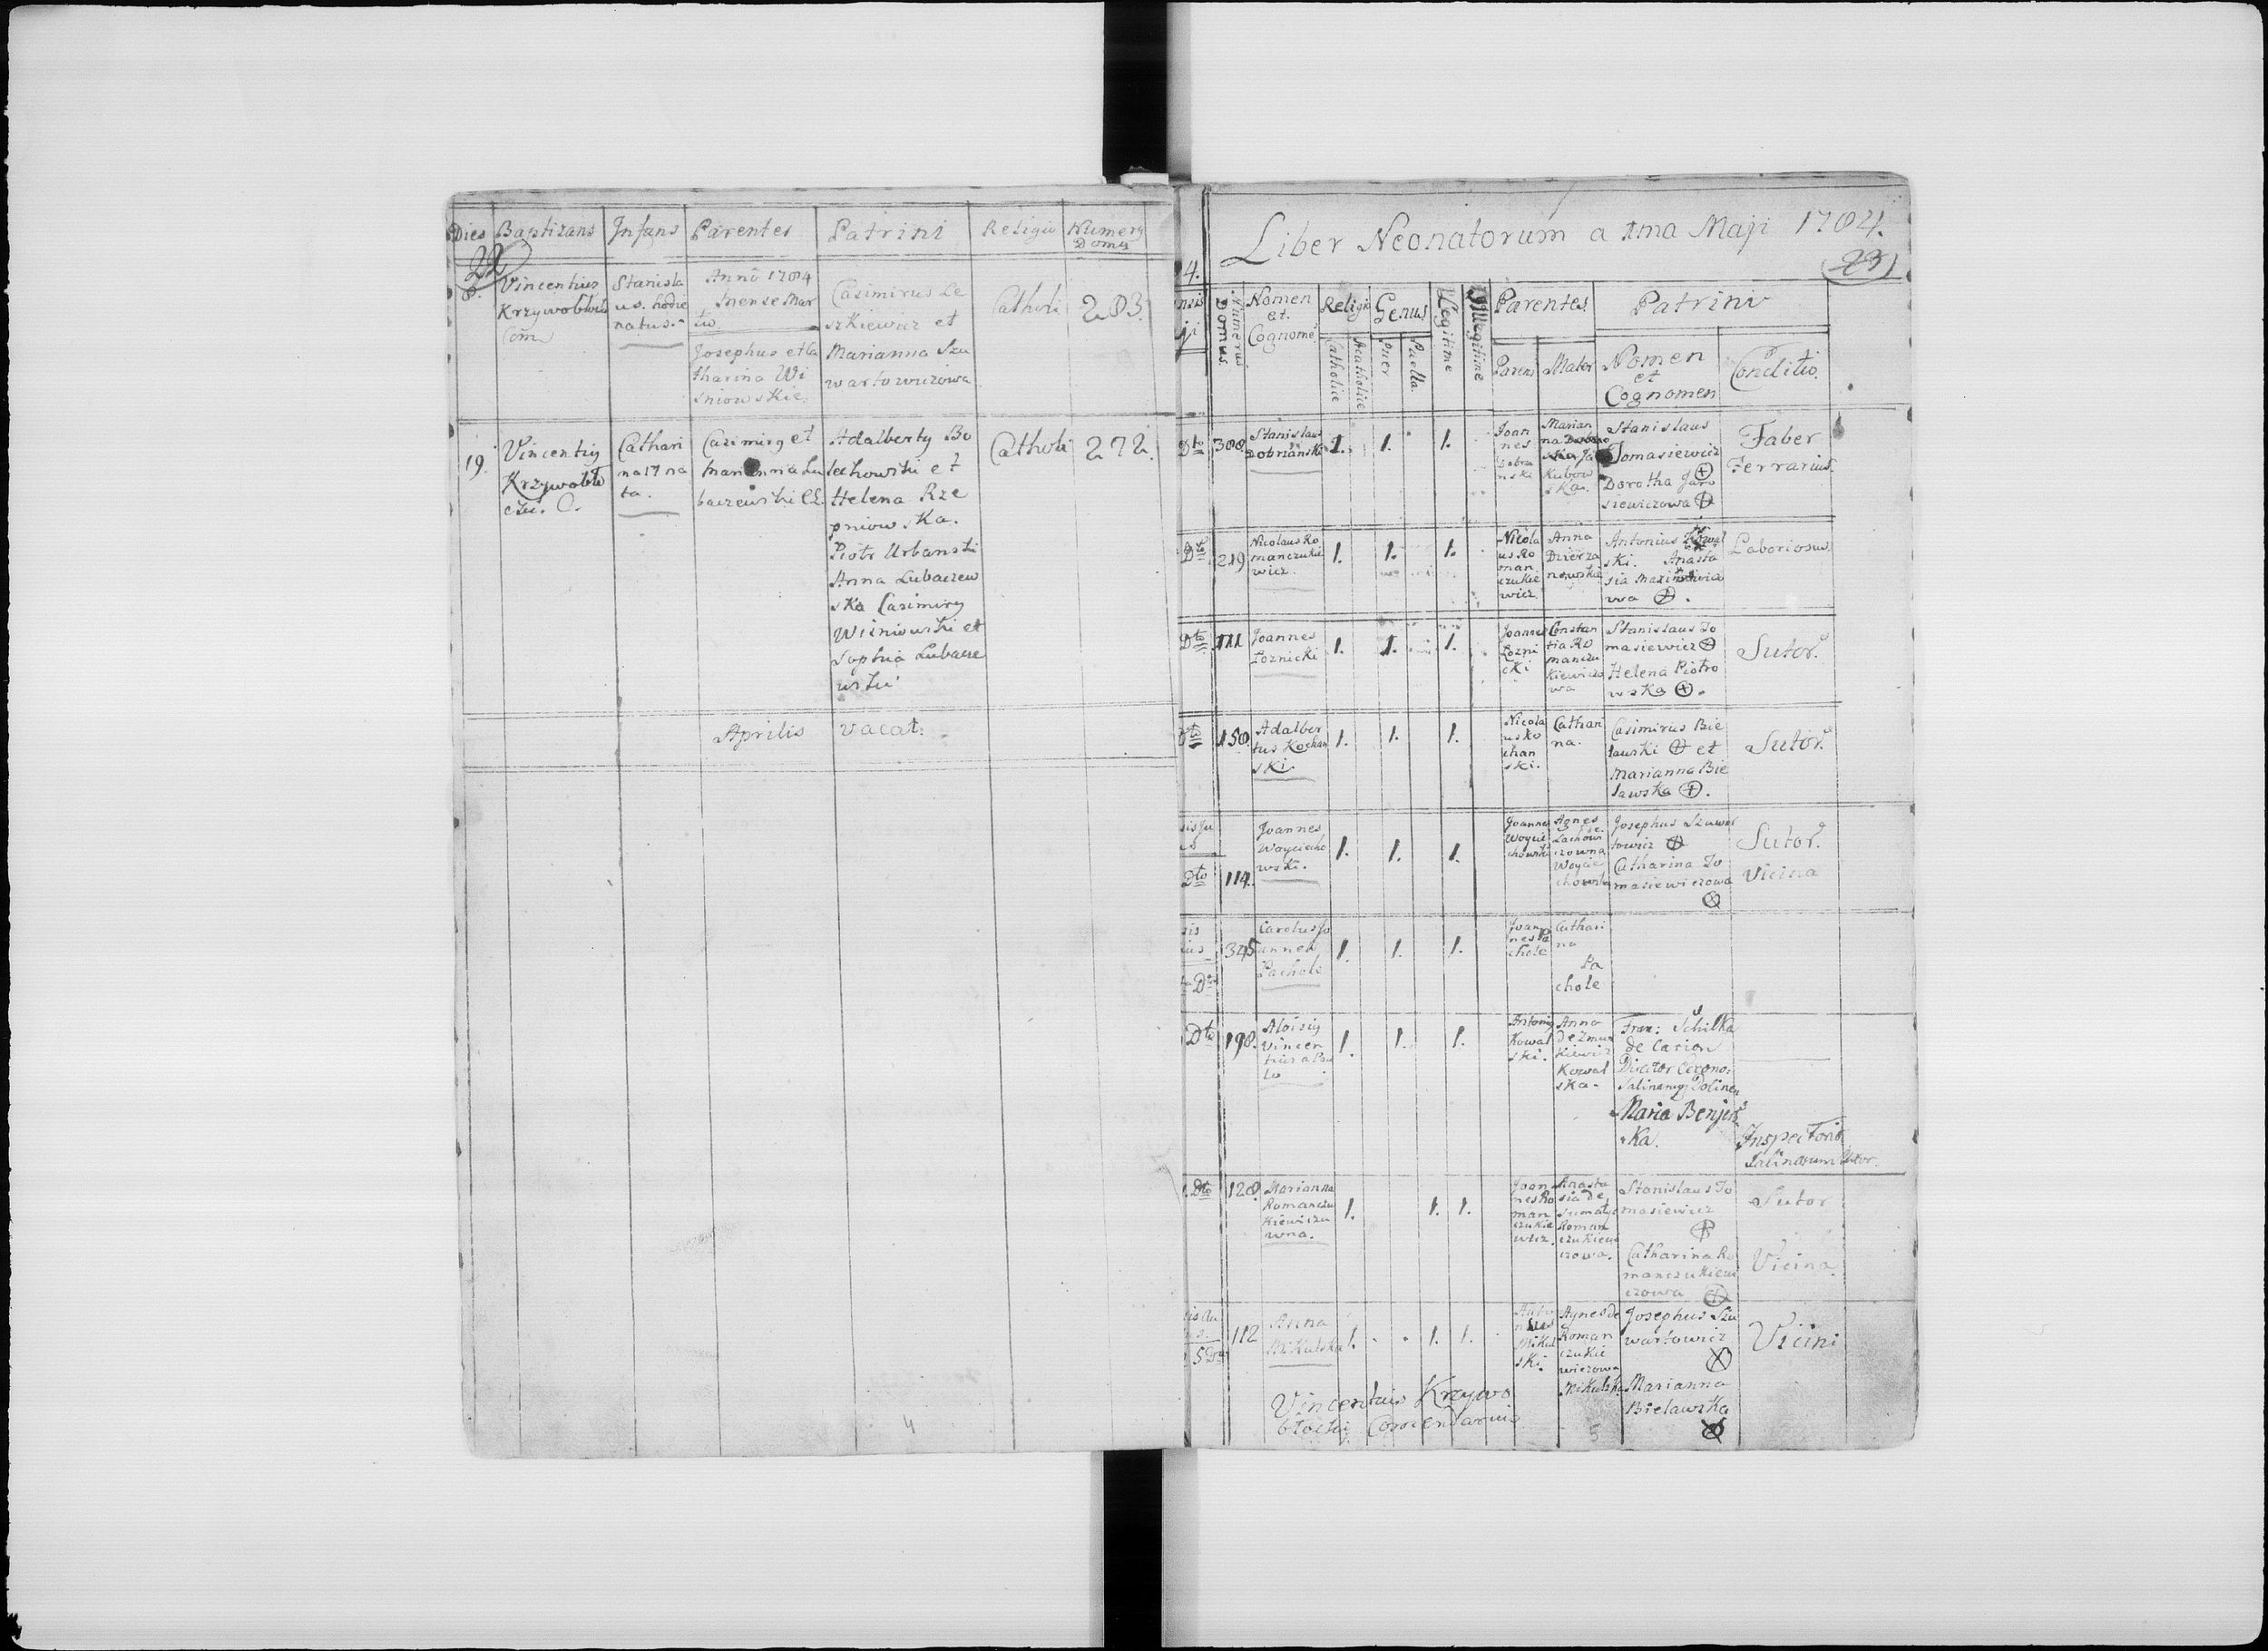 Dies Baptizans Infans Parentes Patrini Religio Numerg
Domg
22
8. Vincentius
Krzywoblocki
Com
Stanisla
us. hodie
natus.
Anno 1784
Mense Mar
tio
Josephus et Ca
tharina Wi
sniowskie
Casimirus Le
szkiewicz et
Marianna Szu
wartowiczowa
Catholi
283.
19.
Vincentig
Krzywoblo
cki. C.
Cathari
na 17 na
ta.
Casimirg et
Marianna Lu
baczewski
Adalbertg Bo
lechowski et
Helena Rze
pniowska.
Piotr Urbanski
Anna Lubaczew
ska Casimirg
Wisniowski et
Sophia Lubacze
wski
Catholi
272.
Aprilis vacat.
4
Liber Neonatorum a 1ma Maji 1784.
23
4.
Numerus
Domus.
Nomen
et
Cognomē
Religio
Catholice
Acatholice
Genus
Puer
Puella.
Legitime
Illegitime
Parentes
Parens
Mater
Patrini
Nomen
et
Cognomen
Conditio.
Dto 308. Stanislaus
Dobrianski
1. 1. 1.
Joan
nes
Dobria
nski
Marian
na
Ja
kubow
ska.
Stanislaus
Tomasiewicz
Dorotha Jaro
siewiczowa
Faber
Ferrarius.
Dto 219 Nicolaus Ro
manczukie
wicz.
1. 1. 1.
Nicola
us Ro
man
czukie
wicz
Anna
Dzierza
nowska
Antonius Kowal
ski. Anasta
sia Maximowicz
wa
Laboriosus.
Dto 111 Joannes
Loznicki
1. 1. 1.
Joannes
Lozni
cki
Constan
tia Ro
manczu
kiewiczo
wa
Stanislaus To
masiewicz
Helena Piotro
wska
Sutor.
Dto 150. Adalber
tus Kochan
ski.
1. 1. 1.
Nicola
us Ko
chan
ski.
Cathari
na.
Casimirus Bie
lawski et
Marianna Bie
lawska
Sutor.
Dto 114. Joannes
Woyciecho
wski.
1. 1. 1.
Joannes
Woycie
chowski
Agnes
Lachowi
czowna
Woycie
chowska
Josephus Szuwar
towicz
Catharina To
masiewiczowa
Sutor.
Vicina
345 Carolus Jo
annes
Pachole
1. 1. 1.
Joan
nes Pa
chole
Cathari
na
Pa
chole
Dto 198. Aloisig
Vincen
tius a Pau
lo
1. 1. 1.
Antonig
Kowal
ski.
Anna
de Zmur
kiewicz
Kowal
ska.
Fran: Schilka
de Carion
Maria Benjers
ka.
Inspectoris
Salinarum Uxor.
Dto 128. Marianna
Romanczu
kiewiczo
wna.
1. 1. 1.
Joan
nes Ro
man
czukie
wicz.
Anasta
sia de
Roman
czukiewi
czowa.
Stanislaus To
masiewicz
Catharina Ro
manczukiewi
czowa
Sutor
Vicina.
5 Dto 112 Anna
Mikulska
1. 1. 1.
Anto
nius
Mikul
ski.
Agnes de
Roman
czukie
wiczowa
Mikulska
Josephus Szu
wartowicz
Marianna
Bielawska
Vicini
Vincentius Krzywo
blocki Comendarius
5